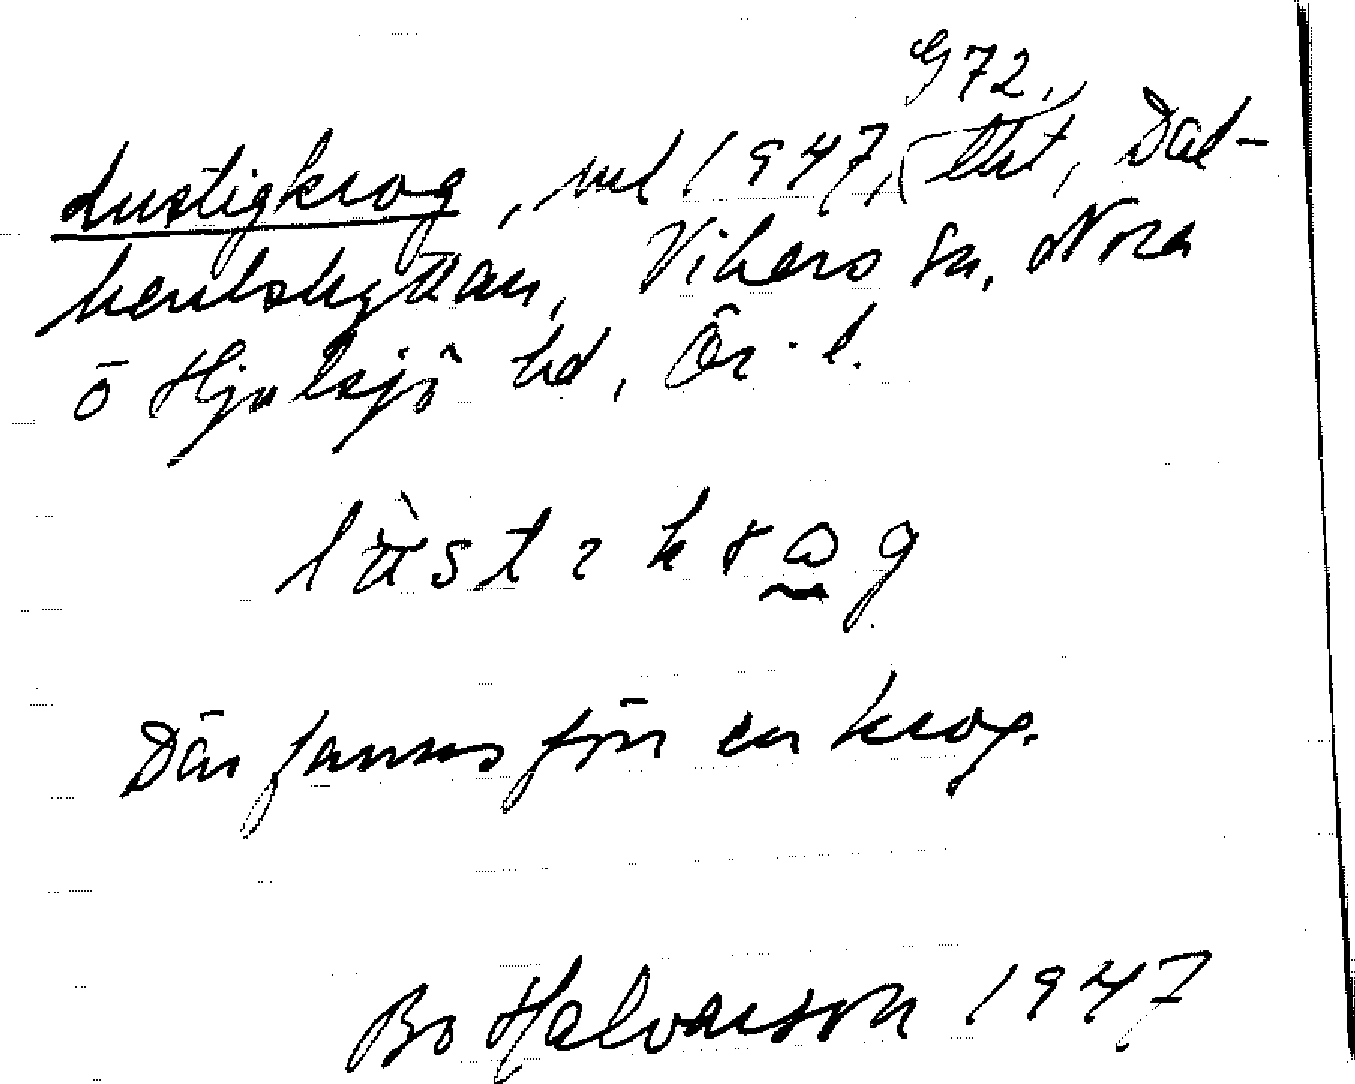 G 72.
Lustigkrog, 1947, Dal-
karlshyttan, Vikers sn, Nora
o Hjulsjö hd, Ör. l.
Där fanns förr en krog.
Bo Halvarson 1947